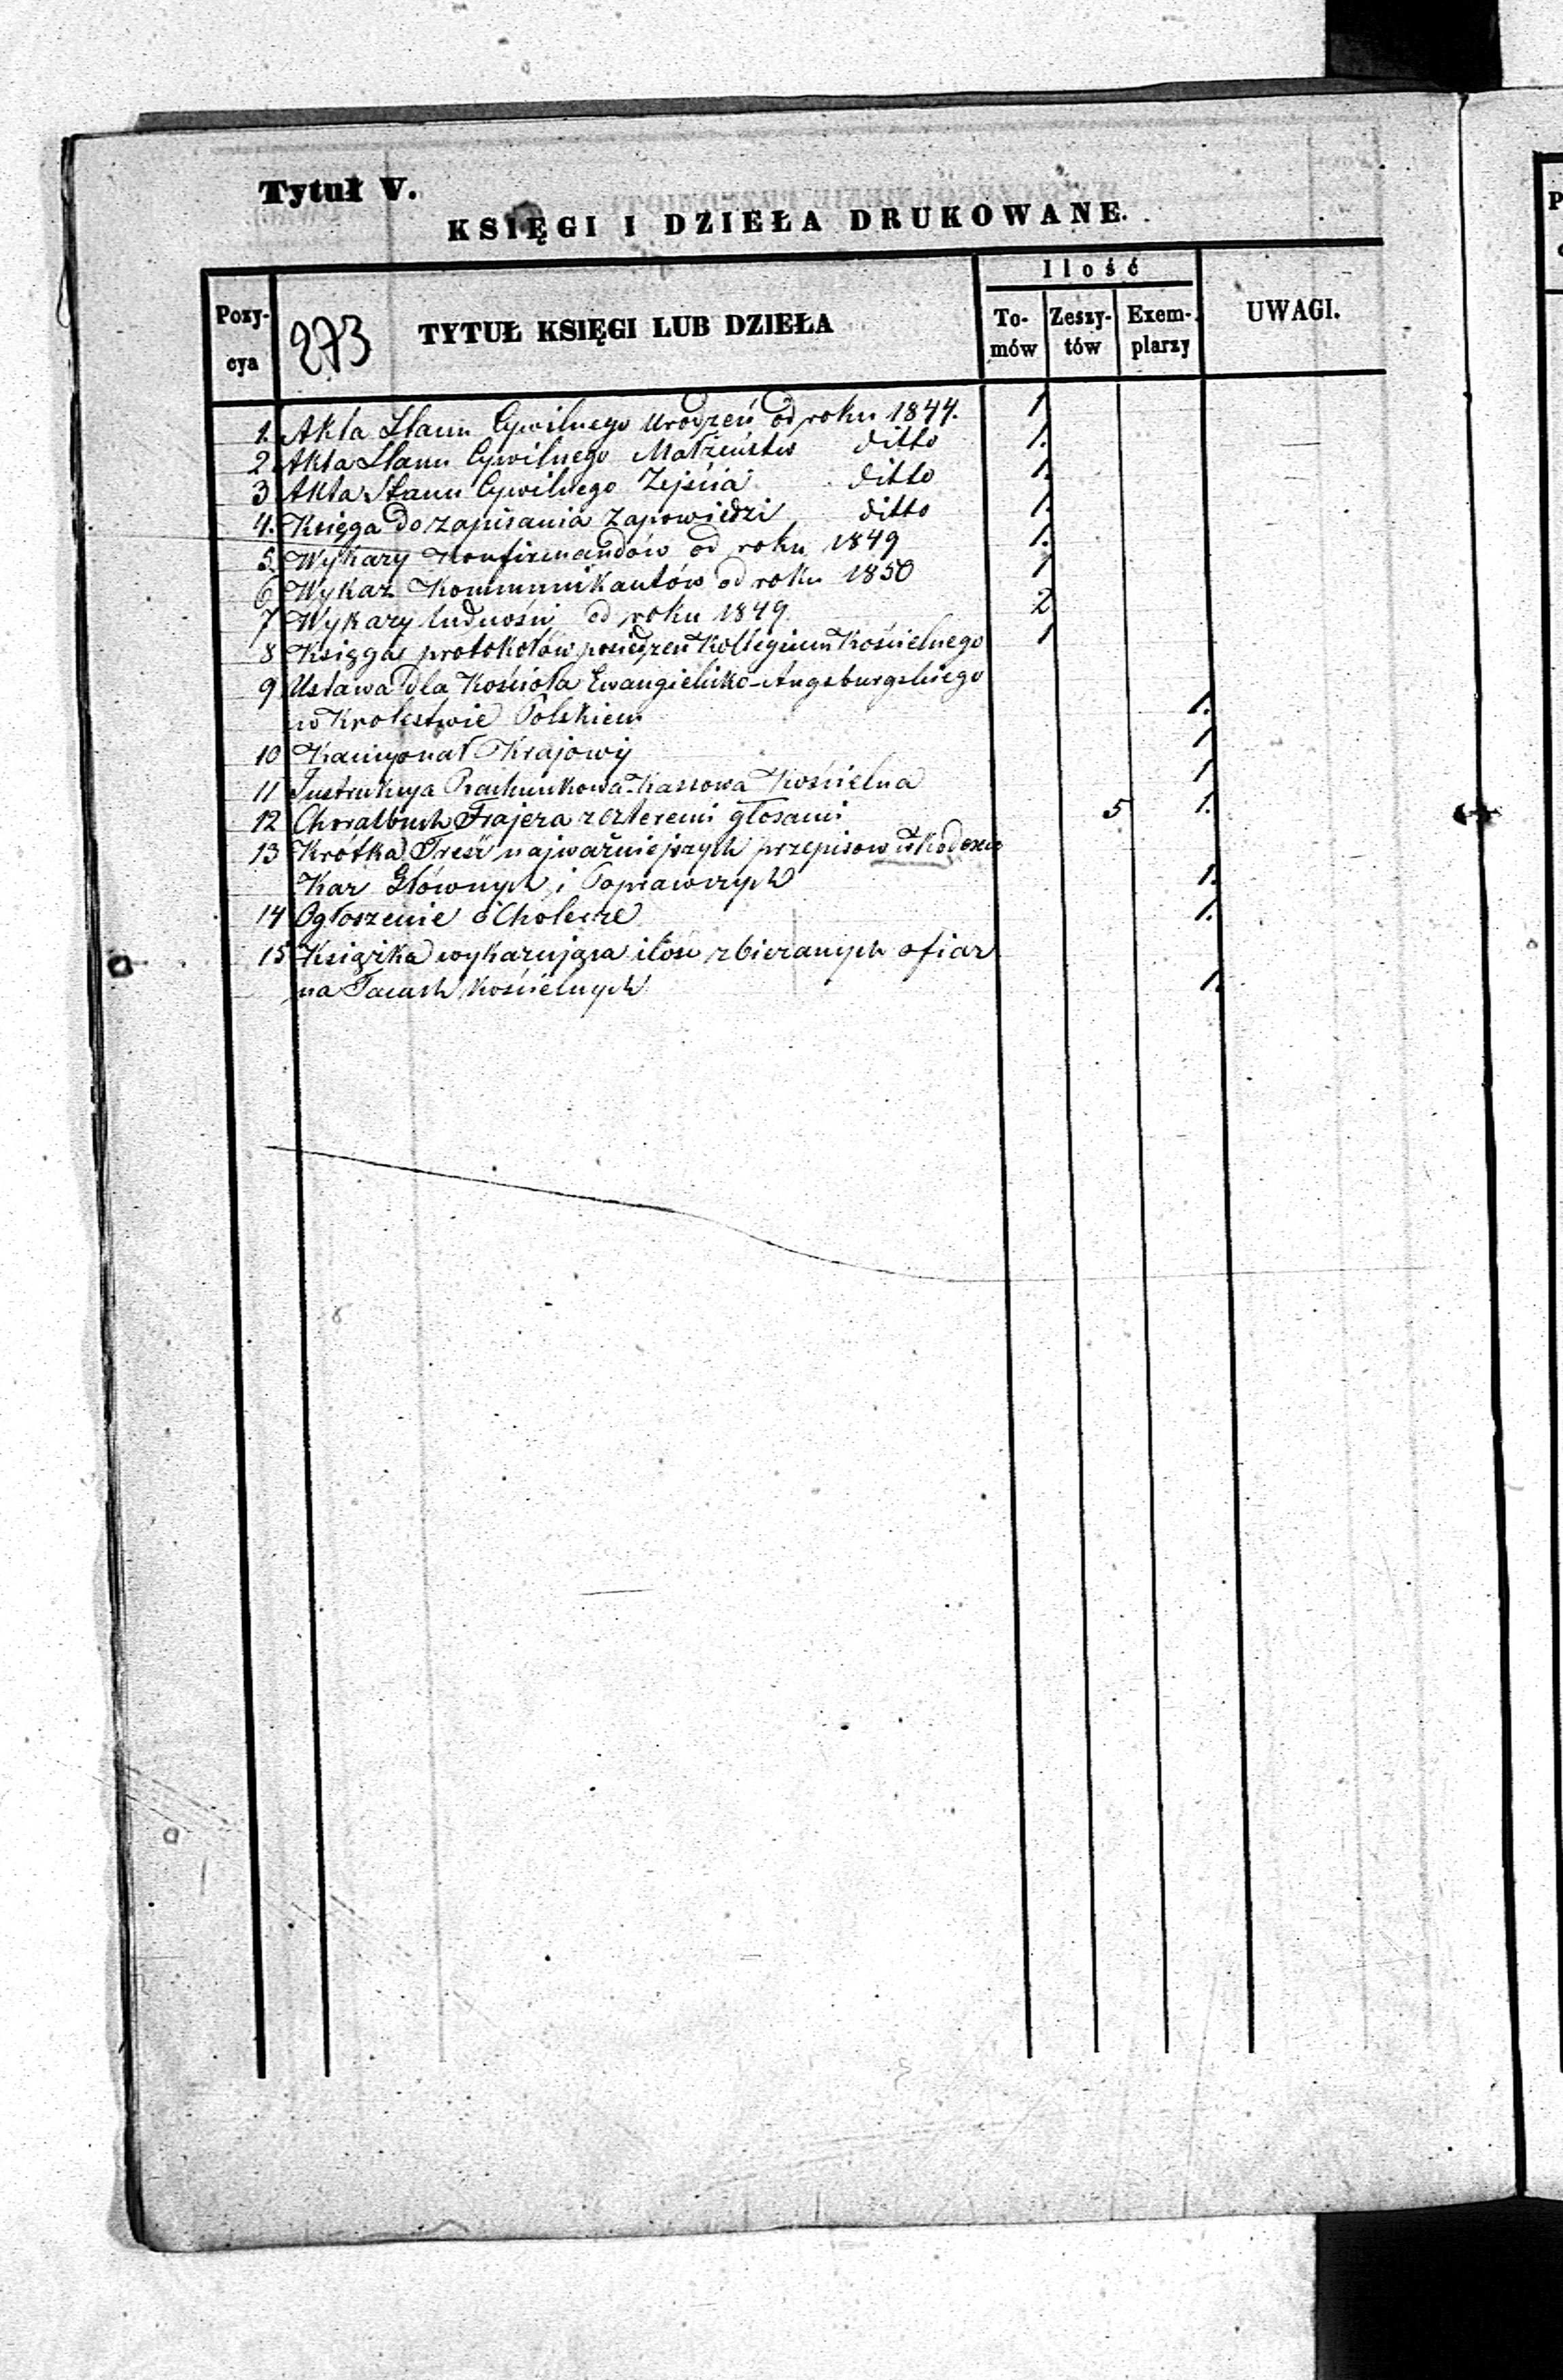 Tytuł V.
KSIĘGI I DZIEŁA DRUKOWANE.
Pozycya 273 TYTUŁ KSIĘGI LUB DZIEŁA Ilość Tomów Zeszytów Exemplarzy UWAGI.
1. Akta Stanu Cywilnego Urodzeń od roku 1844. 1
2 Akta Stanu Cywilnego Małżeństw ditto 1.
3 Akta Stanu Cywilnego Zejścia ditto 1.
4. Księga do zapisania Zapowiedzi ditto 1.
5. Wykazy Konfirmandów od roku 1849 1.
6 Wykaz Kommunikantów od roku 1850 1
7 Wykazy ludności od roku 1849. 2
8 Księga protokołów posiedzeń Kollegium Kościelnego 1
9 Ustawa dla Kościoła Ewangielicko-Augsburgskiego
w Krolestwie Polskiem 1.
10 Kancyonał Krajowy 1
11 Instrukcya Rachunkowa-Kassowa Kościelna 1
12 Choralbuch Frajera z czterema głosami 5 1.
13 Krotka Treść najważniejszych przepisow w Kodexie
Kar Głównych i Poprawczych 1.
14 Ogłoszenie o Cholerze 1.
15 Książka wykazująca ilość zbieranych ofiar
na Tacach Kościelnych 1.